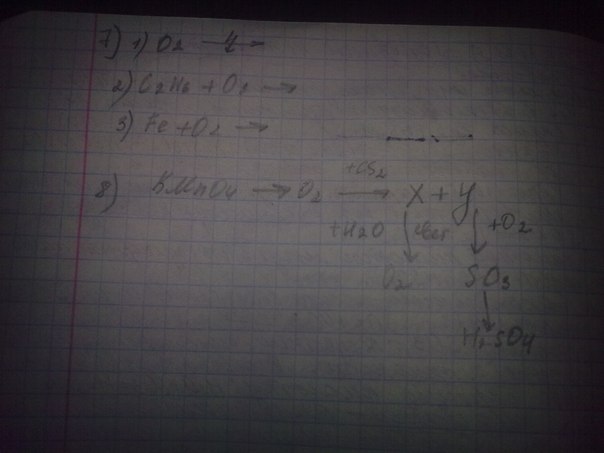 7) 1) O2 —ч→
2) C2H6 + O2 →
3) Fe + O2 →
8) KMnO4 → O2 +CS2 → X + Y
+H2O свет +O2
O2 SO3
H2SO4